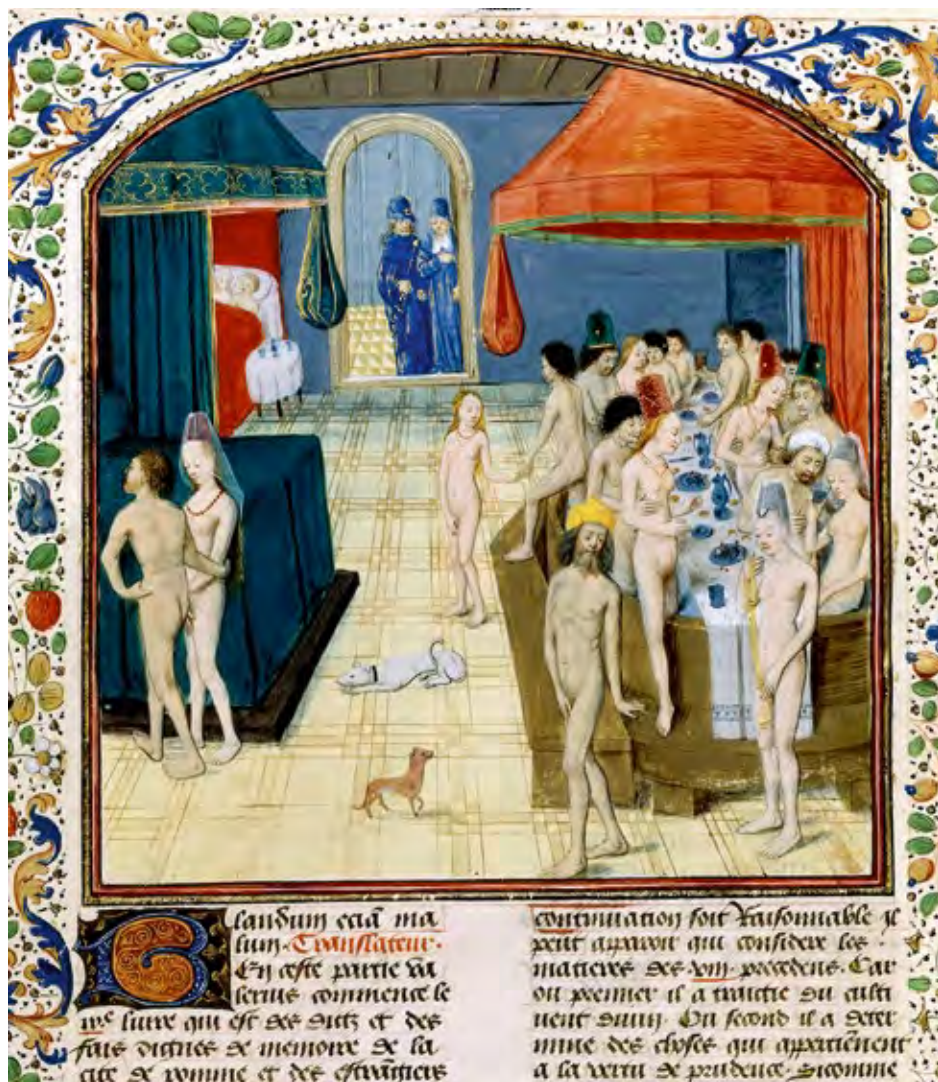 Blandum eciā ma
lum. Translateur.
En ceste partie va
lerius commence le
ixe liure qui est des ditz et des
fais dignes de memoire de la
cite de romme et des estrangiers
continuation soit Raisonnable il
peut apparoir qui considere les
matieres des viii precedens. Car
ou premier il a traictie du culti
uement diuin. Ou second il a deter
mine des choses qui appartienent
a la vertu de prudence. Sicomme